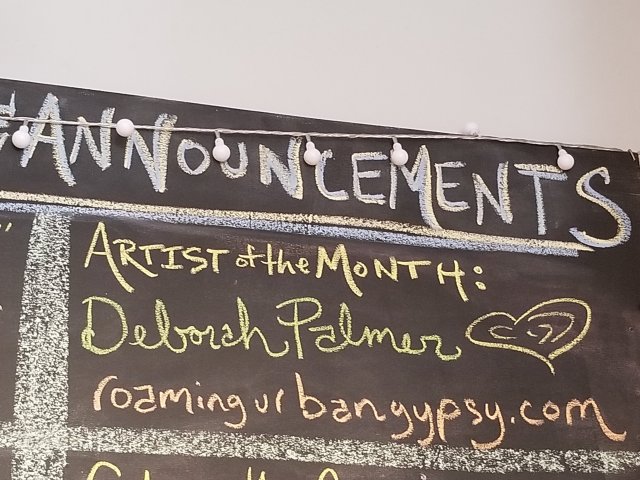 ANNOUNCEMENTS
ARTIST of the MONTH:
Deborah Palmer
roamingurbangypsy.com